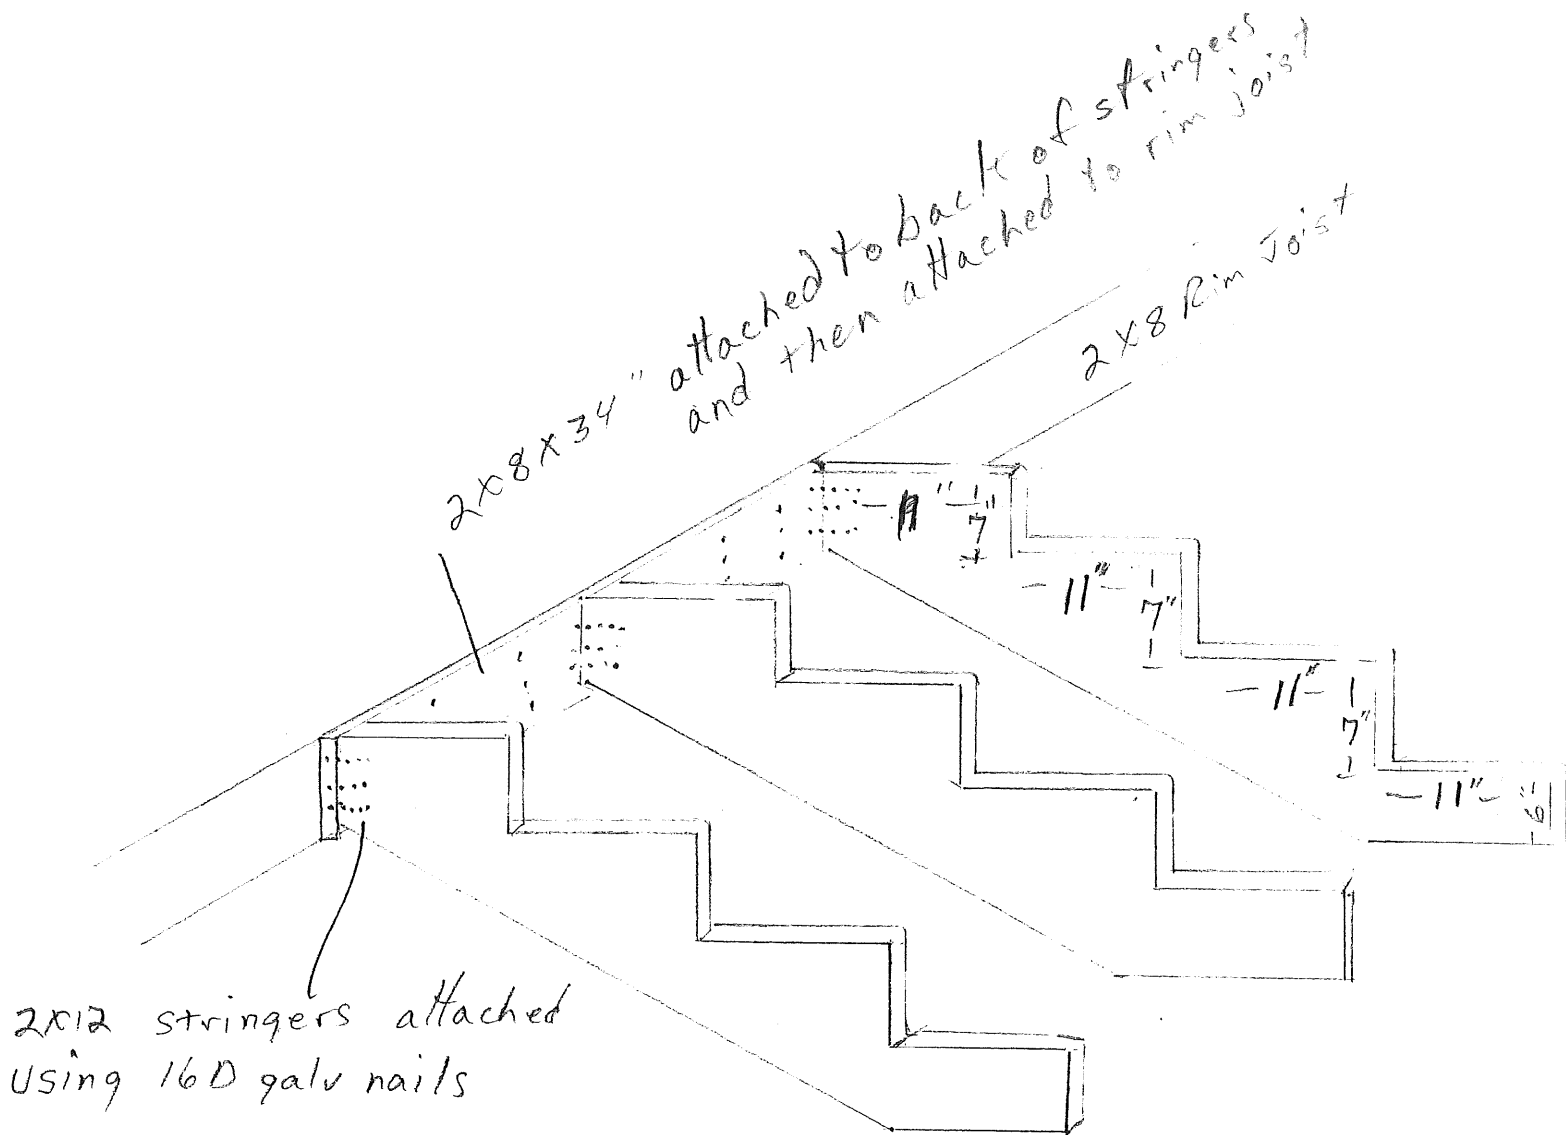 2X8X34" attached to back of stringers
and then attached to rim joist
2X8 Rim Joist
11" 7"
11" 7"
11" 7"
11" 6"
2X12 stringers attached
using 16D galv nails